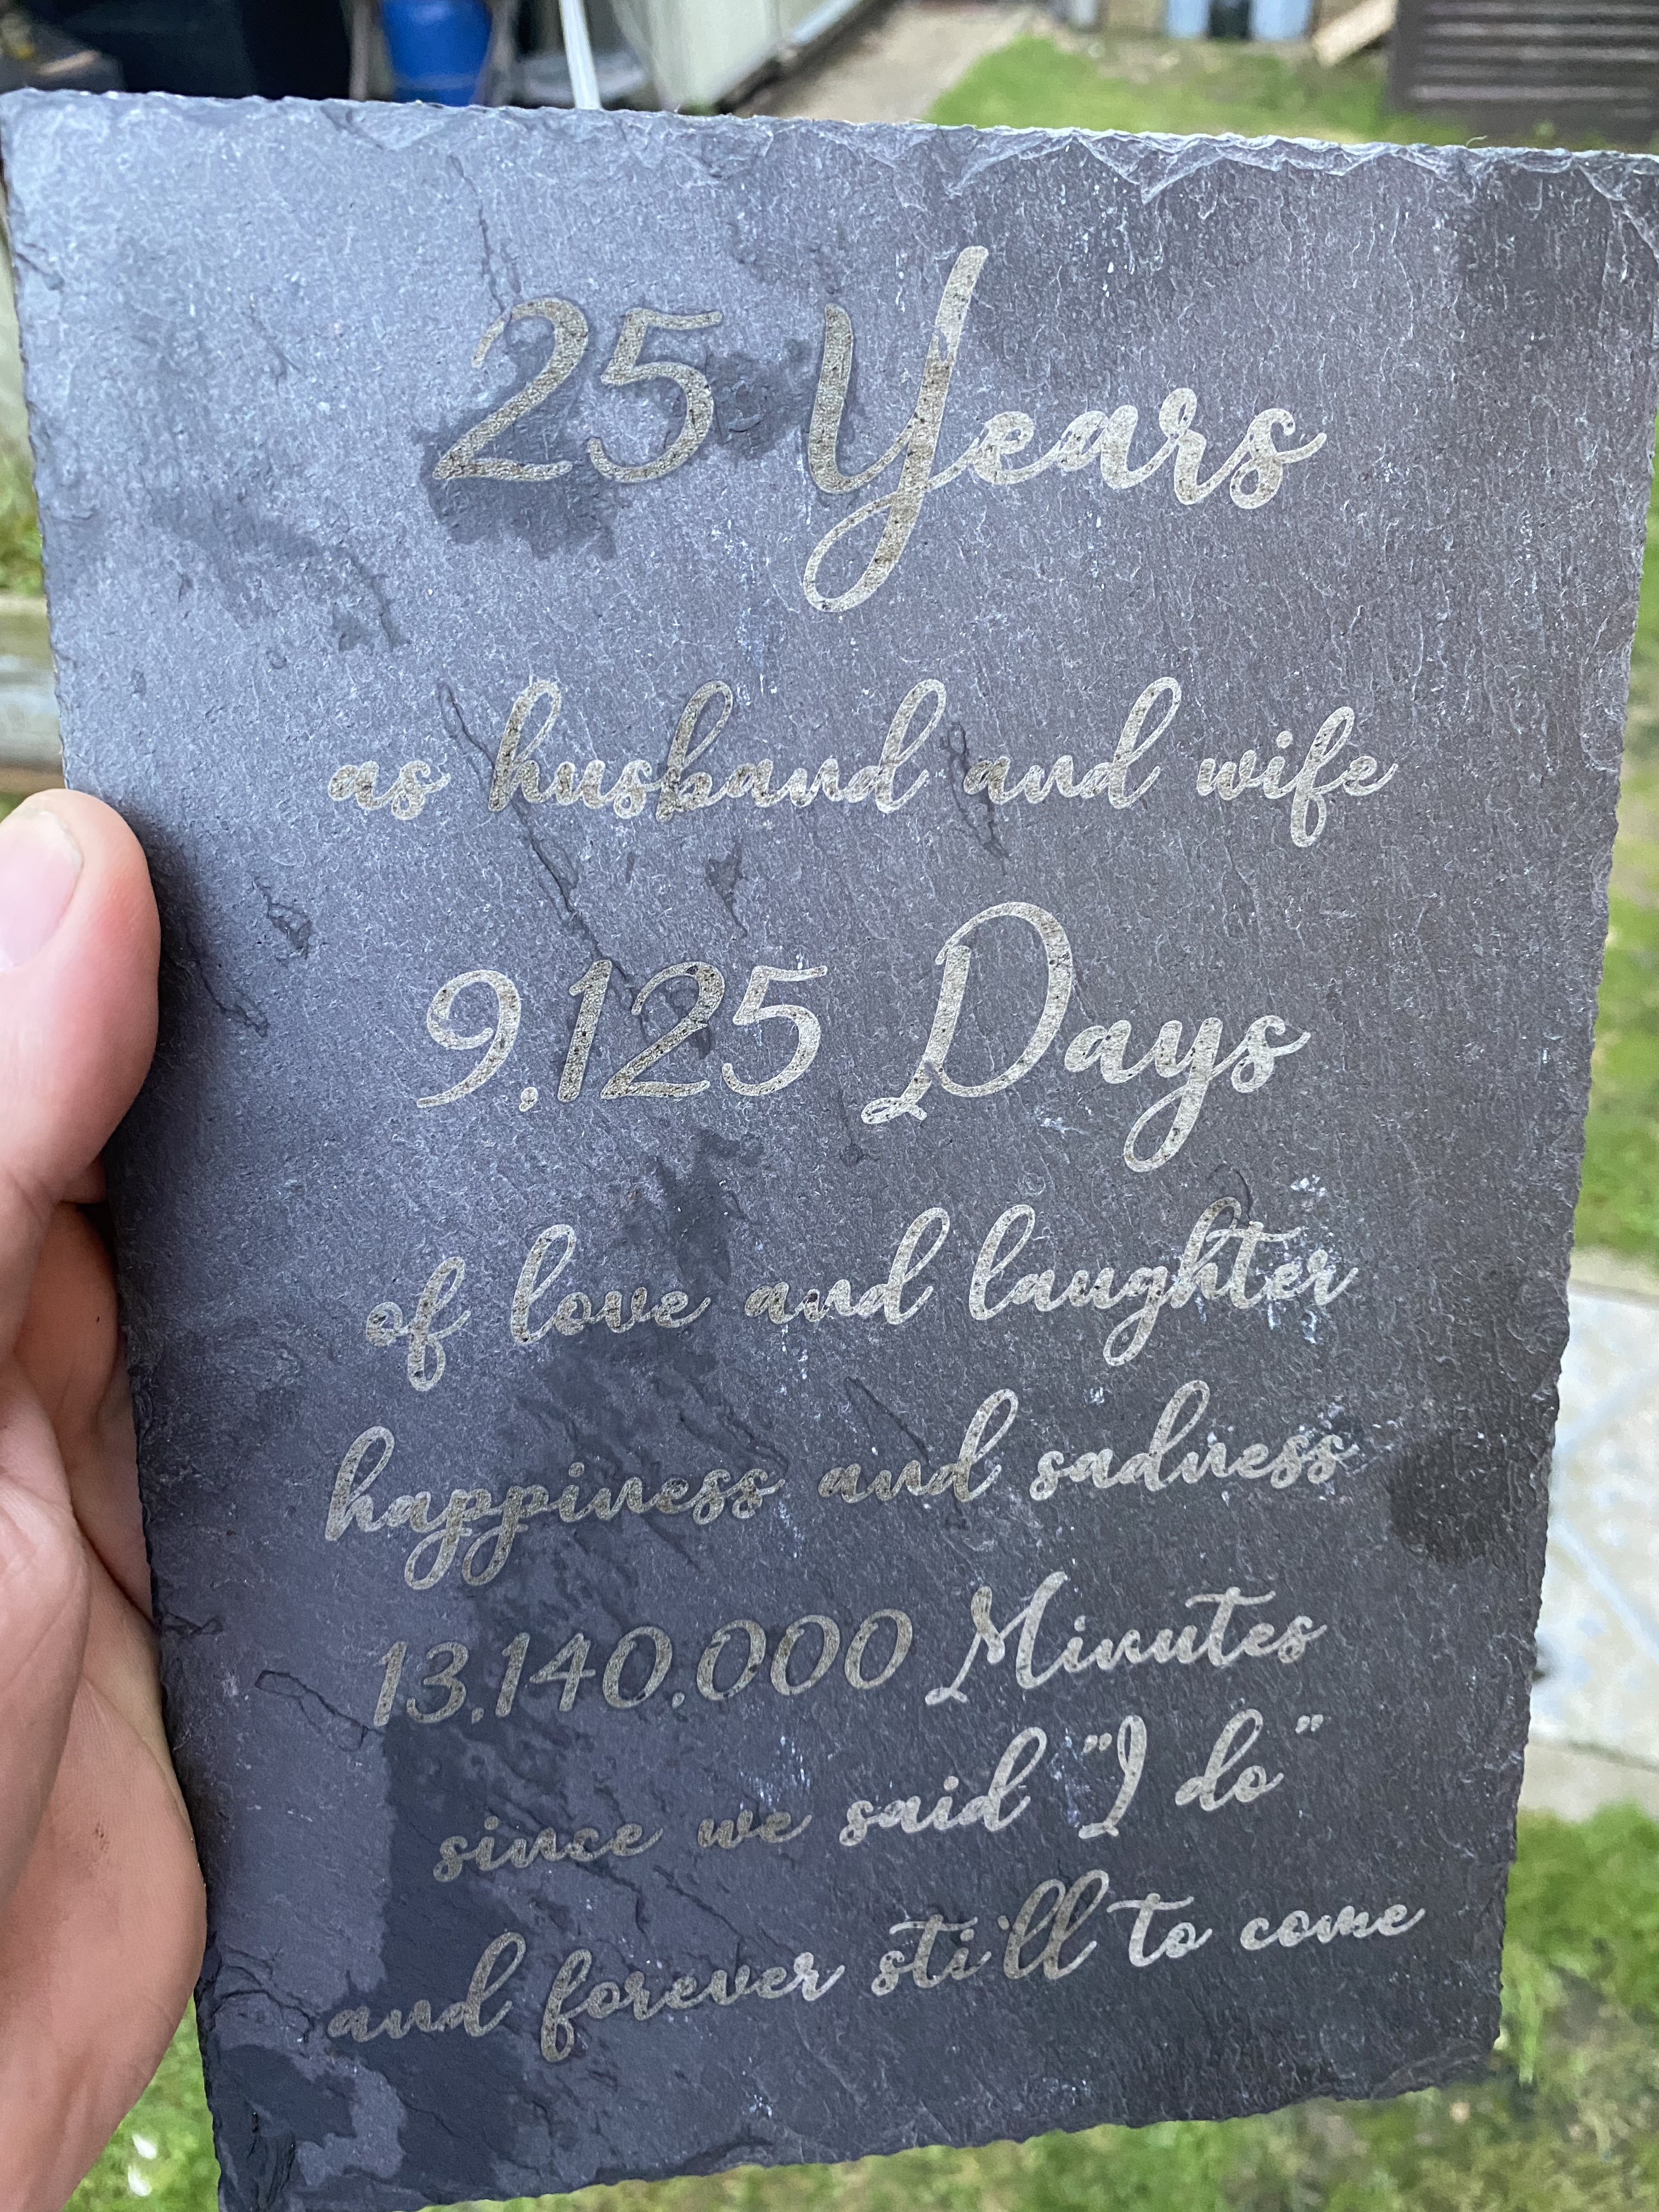 25 Years
as husband and wife
9,125 Days
of love and laughter
happiness and sadness
13,140,000 Minutes
since we said "I do"
and forever still to come